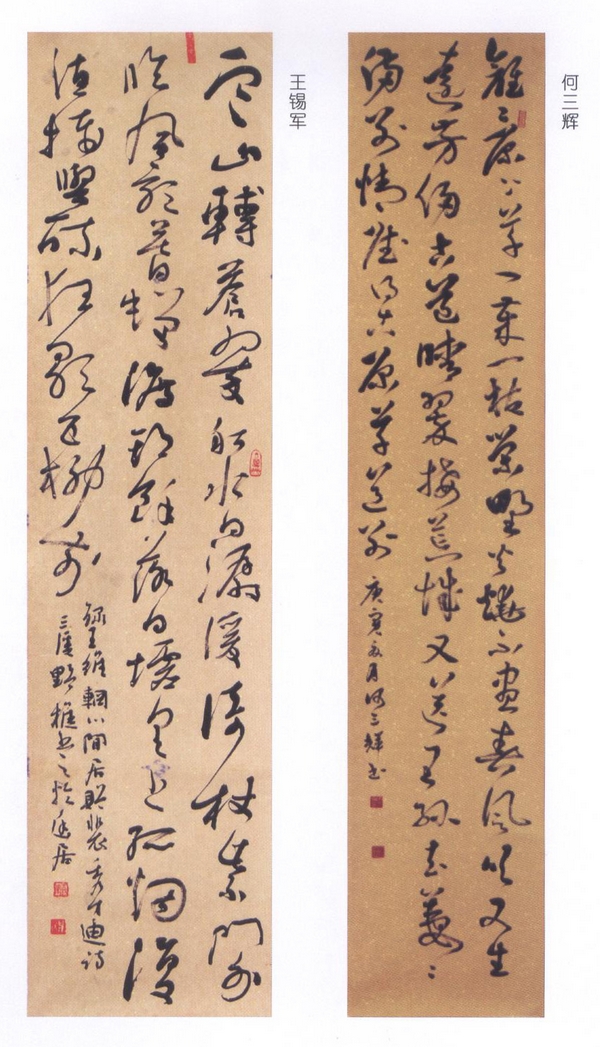 何三辉
離々原上草一歲一枯榮野火燒不盡春風吹又生
遠芳侵古道晴翠接荒城又送王孫去萋々
滿別情 賦得古原草送別
庚寅月何三輝書
王锡军
寒山轉蒼翠秋水日潺湲倚杖柴門外
臨風聽暮蟬渡頭餘落日墟里上孤煙復
值接輿醉狂歌五柳前
錄王維輞川閒居贈裴秀才迪詩
三野樵書之於居